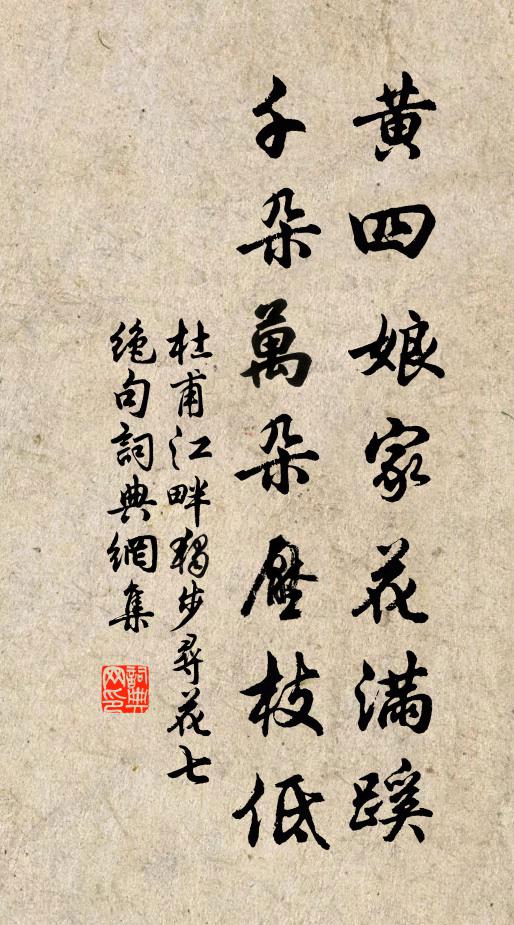 黄四娘家花满蹊
千朵萬朵壓枝低
杜甫江畔獨步尋花七
絶句詞典網集
詞典网印